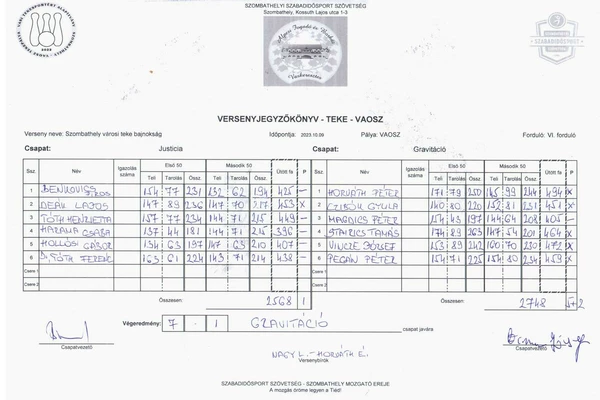 SZOMBATHELYI SZABADIDŐSPORT SZÖVETSÉG
Szombathely, Kossuth Lajos utca 1-3
VERSENYJEGYZŐKÖNYV - TEKE - VAOSZ
Verseny neve: Szombathely városi teke bajnokság Időpontja: 2023.10.09 Pálya: VAOSZ Forduló: VI. forduló
Csapat: Justicia Csapat: Gravitáció
Ssz. Név Igazolás száma Első 50 Második 50 Ütött fa P Ssz. Név Igazolás száma Első 50 Második 50 Ütött fa P
Teli Tarolás Össz. Teli Tarolás Össz. Teli Tarolás Össz. Teli Tarolás Össz.
1 BENKOVICS 154 77 231 132 62 194 425 - 1 HORVÁTH PÉTER 171 79 250 145 99 244 494 X
2 DEÁK LAJOS 147 89 236 147 70 217 453 X 2 CZIBÓK GYULA 140 80 220 152 81 231 451 -
3 TÓTH HENRIETTA 157 77 234 144 71 215 449 - 3 MAGDICS PÉTER 154 43 197 144 64 208 405 -
4 HARANIA CSABA 137 44 181 144 71 215 396 - 4 STAIRICS TAMÁS 174 89 263 147 54 201 464 X
5 HOLLÓSI GÁBOR 134 63 197 147 63 210 407 - 5 VINCZE JÓZSEF 153 89 242 160 70 230 472 X
6 Dr. TÓTH FERENC 163 61 224 143 71 214 438 - 6 PEGÁN PÉTER 154 71 225 154 80 234 459 X
Csere 1 Csere 1
Csere 2 Csere 2
Összesen: 2568 1 Összesen: 2748 5+2
Végeredmény: 7 - 1 GRAVITÁCIÓ csapat javára
Csapatvezető Csapatvezető
NAGY L. - HORVÁTH É.
Versenybírók
SZABADIDŐSPORT SZÖVETSÉG - SZOMBATHELY MOZGATÓ EREJE
A mozgás öröme legyen a Tiéd!